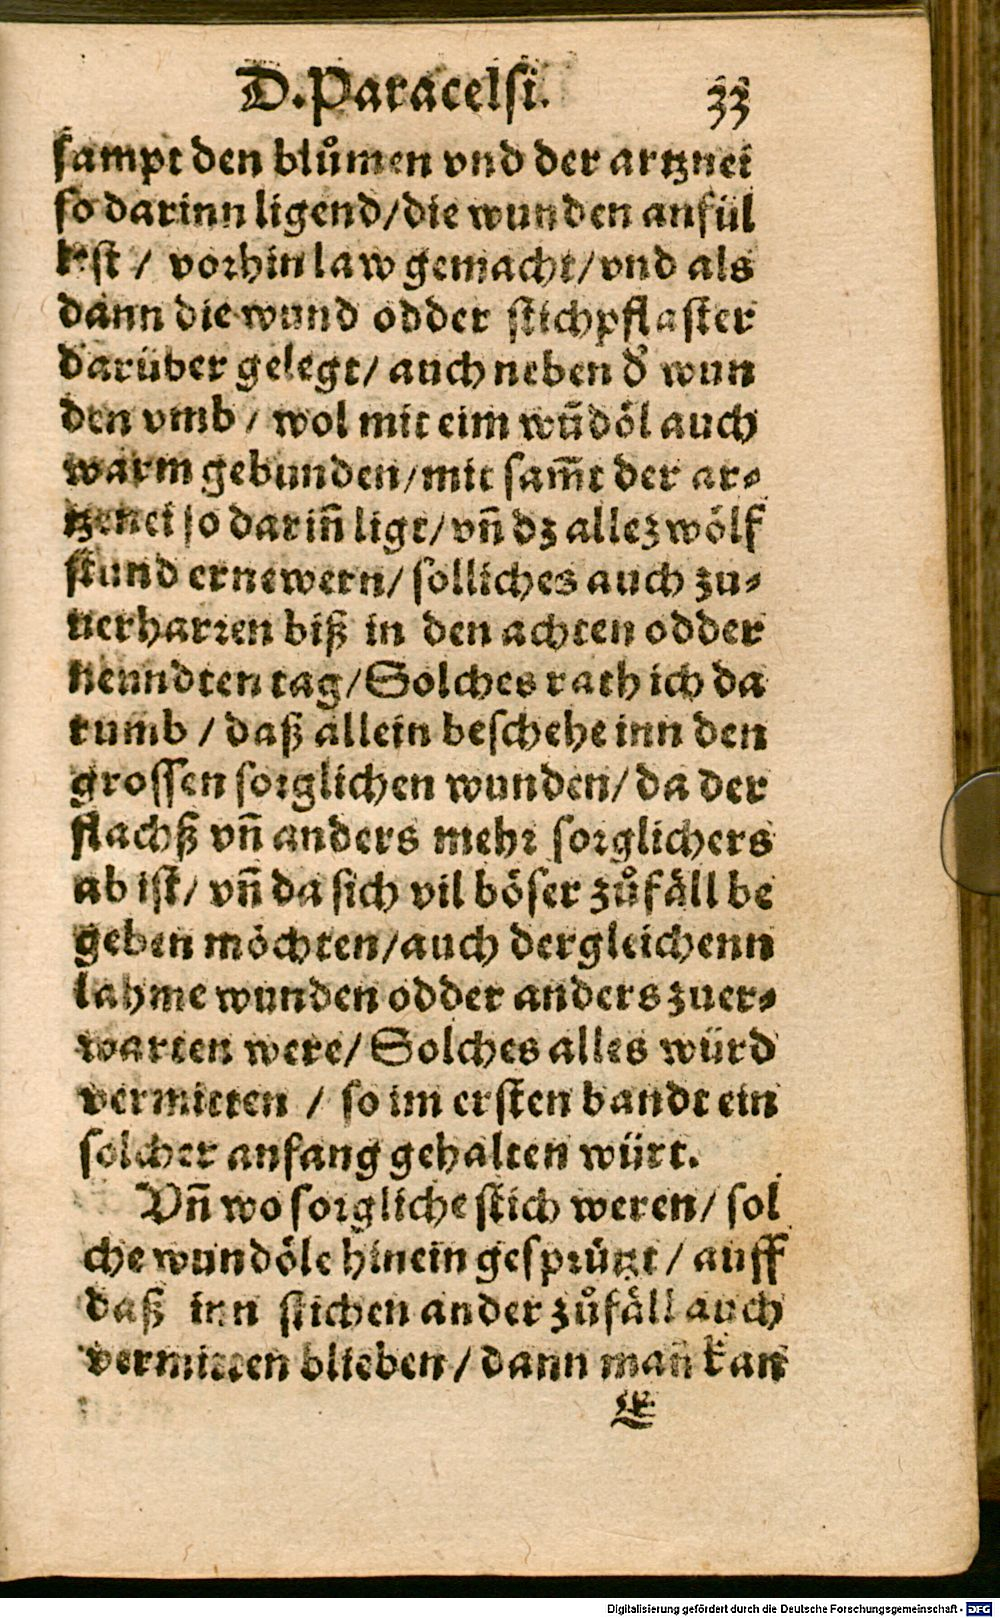 D. Paracelsi. 33
sampt den blůmen vnd der artznei
so darinn ligend/die wunden anfül
lest / vorhin law gemacht/vnd als
dann die wund odder stichpflaster
darüber gelegt/ auch neben d̕ wun
den vmb / wol mit eim wūdöl auch
warm gebunden/mit sam̄t der ar⸗
tzenei so darin̄ ligt/ vn̄ dz alle zwölf
stund ernewern/ solliches auch zu⸗
uerharren biß in den achten odder
neundten tag/Solches rath ich da
rumb / daß allein beschehe inn den
grossen sorglichen wunden/ da der
flachß vn̄ anders mehr sorglichers
ab ist/ vn̄ da sich vil böser zůfäll be
geben möchten/auch dergleichenn
lahme wunden odder anders zuer⸗
warten were/ Solches alles würd
vermitten / so im ersten bandt ein
solcher anfang gehalten würt.
Vn̄ wo sorgliche stich weren/ sol
che wundöle hinein gesprützt / auff
daß inn stichen ander zůfäll auch
vermitten blieben / dann man̄ kan
E
Digitalisierung gefördert durch die Deutsche Forschungsgemeinschaft - DFG